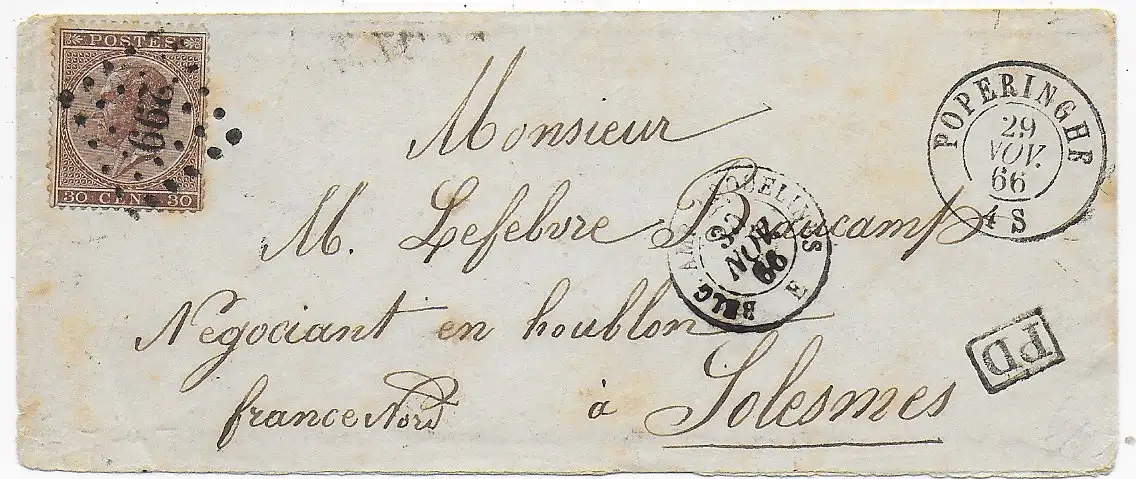 POSTES
30 CENT 30
299
POPERINGHE
29
NOV.
66
4 S
Monsieur
M. Lefebvre Daucamp
BELG. AMB. QUELINES E
30
NOV
66
Négociant en houblon
PD
france Nord à Solesmes